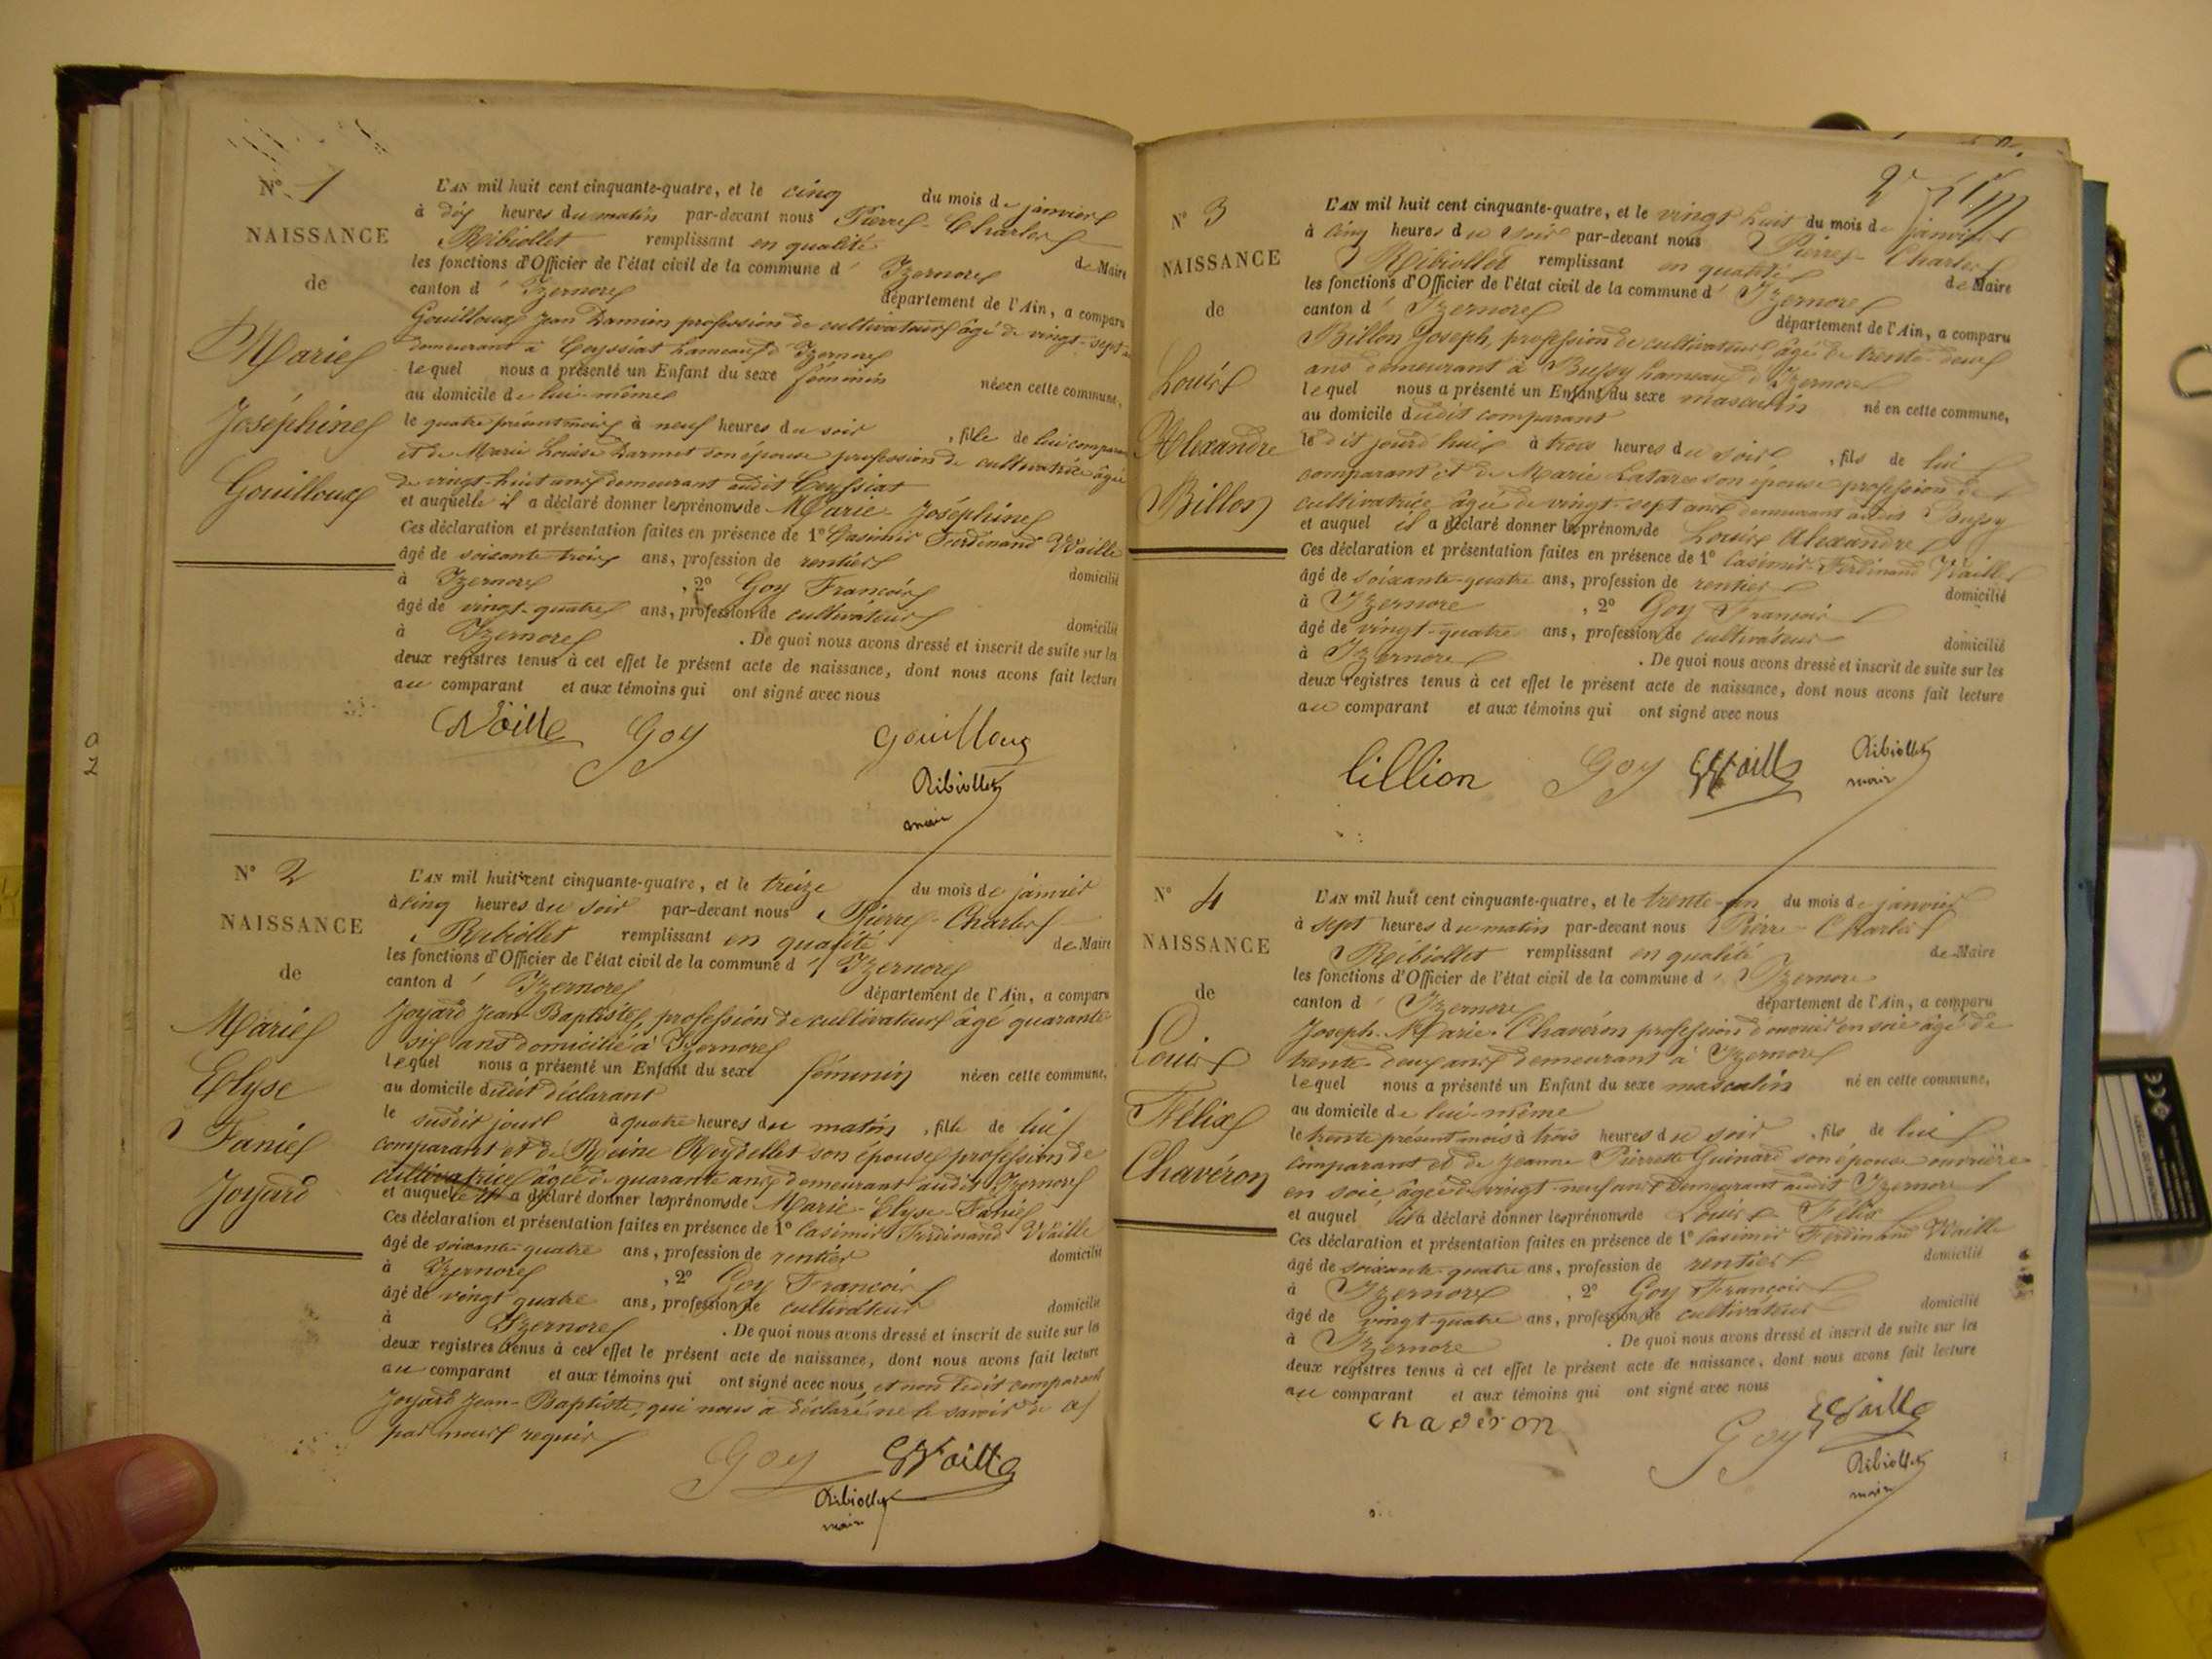 N° 1
NAISSANCE
de
Marie
Joséphine
Gouilloux
L'AN mil huit cent cinquante-quatre, et le cinq du mois de janvier
à dix heures du matin par-devant nous Pierre-Charles
Ribiollet remplissant en qualité de Maire
les fonctions d'Officier de l'état civil de la commune d'Izernore
canton d'Izernore département de l'Ain, a comparu
Gouilloux Jean Damien profession de cultivateur âgé de vingt-sept
demeurant à Ceyssiat hameau d'Izernore
lequel nous a présenté un Enfant du sexe féminin née en cette commune,
au domicile de lui-même
le quatre présent mois à neuf heures du soir, fille de lui comparant
et de Marie Louise Darmet son épouse profession de cultivatrice âgée
de vingt-huit ans demeurant audit Ceyssiat
et auquelle il a déclaré donner les prénoms de Marie-Joséphine
Ces déclaration et présentation faites en présence de 1° Casimir Ferdinand Waille
âgé de soixante-trois ans, profession de rentier domicilié
à Izernore, 2° Goy François
âgé de vingt-quatre ans, profession de cultivateur domicilié
à Izernore. De quoi nous avons dressé et inscrit de suite sur les
deux registres tenus à cet effet le présent acte de naissance, dont nous avons fait lecture
au comparant et aux témoins qui ont signé avec nous
Goy gouilloux
Ribiollet
maire
N° 2
NAISSANCE
de
Marie
Elyse
Fanie
Joyard
L'AN mil huit cent cinquante-quatre, et le treize du mois de janvier
à cinq heures du soir par-devant nous Pierre-Charles
Ribiollet remplissant en qualité de Maire
les fonctions d'Officier de l'état civil de la commune d'Izernore
canton d'Izernore département de l'Ain, a comparu
Joyard Jean-Baptiste, profession de cultivateur âgé quarante-
six ans domicilié à Izernore
lequel nous a présenté un Enfant du sexe féminin née en cette commune,
au domicile dudit déclarant
le susdit jour à quatre heures du matin, fille de lui
comparant et de Reine Reydellet son épouse profession de
cultivatrice âgée de quarante ans demeurant audit Izernore
et auquelle il a déclaré donner les prénoms de Marie-Elyse-Fanie
Ces déclaration et présentation faites en présence de 1° Casimir Ferdinand Waille
âgé de soixante-quatre ans, profession de rentier domicilié
à Izernore, 2° Goy François
âgé de vingt-quatre ans, profession de cultivateur domicilié
à Izernore. De quoi nous avons dressé et inscrit de suite sur les
deux registres tenus à cet effet le présent acte de naissance, dont nous avons fait lecture
au comparant et aux témoins qui ont signé avec nous et non ledit comparant
Joyard Jean-Baptiste, qui nous a déclaré ne le savoir de ce
par nous requis
Goy
Ribiollet
maire
N° 3
NAISSANCE
de
Louis
Alexandre
Billon
L'AN mil huit cent cinquante-quatre, et le vingt huit du mois de janvier
à cinq heures du soir par-devant nous Pierre-Charles
Ribiollet remplissant en qualité de Maire
les fonctions d'Officier de l'état civil de la commune d'Izernore
canton d'Izernore département de l'Ain, a comparu
Billon Joseph, profession de cultivateur, âgé de trente-deux
ans demeurant à Bussy hameau d'Izernore
lequel nous a présenté un Enfant du sexe masculin né en cette commune,
au domicile dudit comparant
le dit jourd'hui à trois heures du soir, fils de lui
comparant et de Marie son épouse profession de
cultivatrice âgée de vingt-sept ans demeurant audit Bussy
et auquel il a déclaré donner les prénoms de Louis Alexandre
Ces déclaration et présentation faites en présence de 1° Casimir Ferdinand Waille
âgé de soixante-quatre ans, profession de rentier domicilié
à Izernore, 2° Goy François
âgé de vingt-quatre ans, profession de cultivateur domicilié
à Izernore. De quoi nous avons dressé et inscrit de suite sur les
deux registres tenus à cet effet le présent acte de naissance, dont nous avons fait lecture
au comparant et aux témoins qui ont signé avec nous
Goy Ribiollet
maire
N° 4
NAISSANCE
de
Louis
Félix
Chavéron
L'AN mil huit cent cinquante-quatre, et le trente-un du mois de janvier
à sept heures du matin par-devant nous Pierre-Charles
Ribiollet remplissant en qualité de Maire
les fonctions d'Officier de l'état civil de la commune d'Izernore
canton d'Izernore département de l'Ain, a comparu
Joseph-Marie-Chavéron profession d'ouvrier en soie âgé de
trente-deux ans demeurant à Izernore
lequel nous a présenté un Enfant du sexe masculin né en cette commune,
au domicile de lui-même
le trente présent mois à trois heures du soir, fils de lui
comparant et de Jeanne Pierrette Guinard son épouse ouvrière
en soie, âgée de vingt-neuf ans demeurant audit Izernore
et auquel il a déclaré donner les prénoms de Louis-Félix
Ces déclaration et présentation faites en présence de 1° Casimir Ferdinand Waille
âgé de soixante-quatre ans, profession de rentier domicilié
à Izernore, 2° Goy François
âgé de vingt-quatre ans, profession de cultivateur domicilié
à Izernore. De quoi nous avons dressé et inscrit de suite sur les
deux registres tenus à cet effet le présent acte de naissance, dont nous avons fait lecture
au comparant et aux témoins qui ont signé avec nous
chaveron Goy
Ribiollet
maire